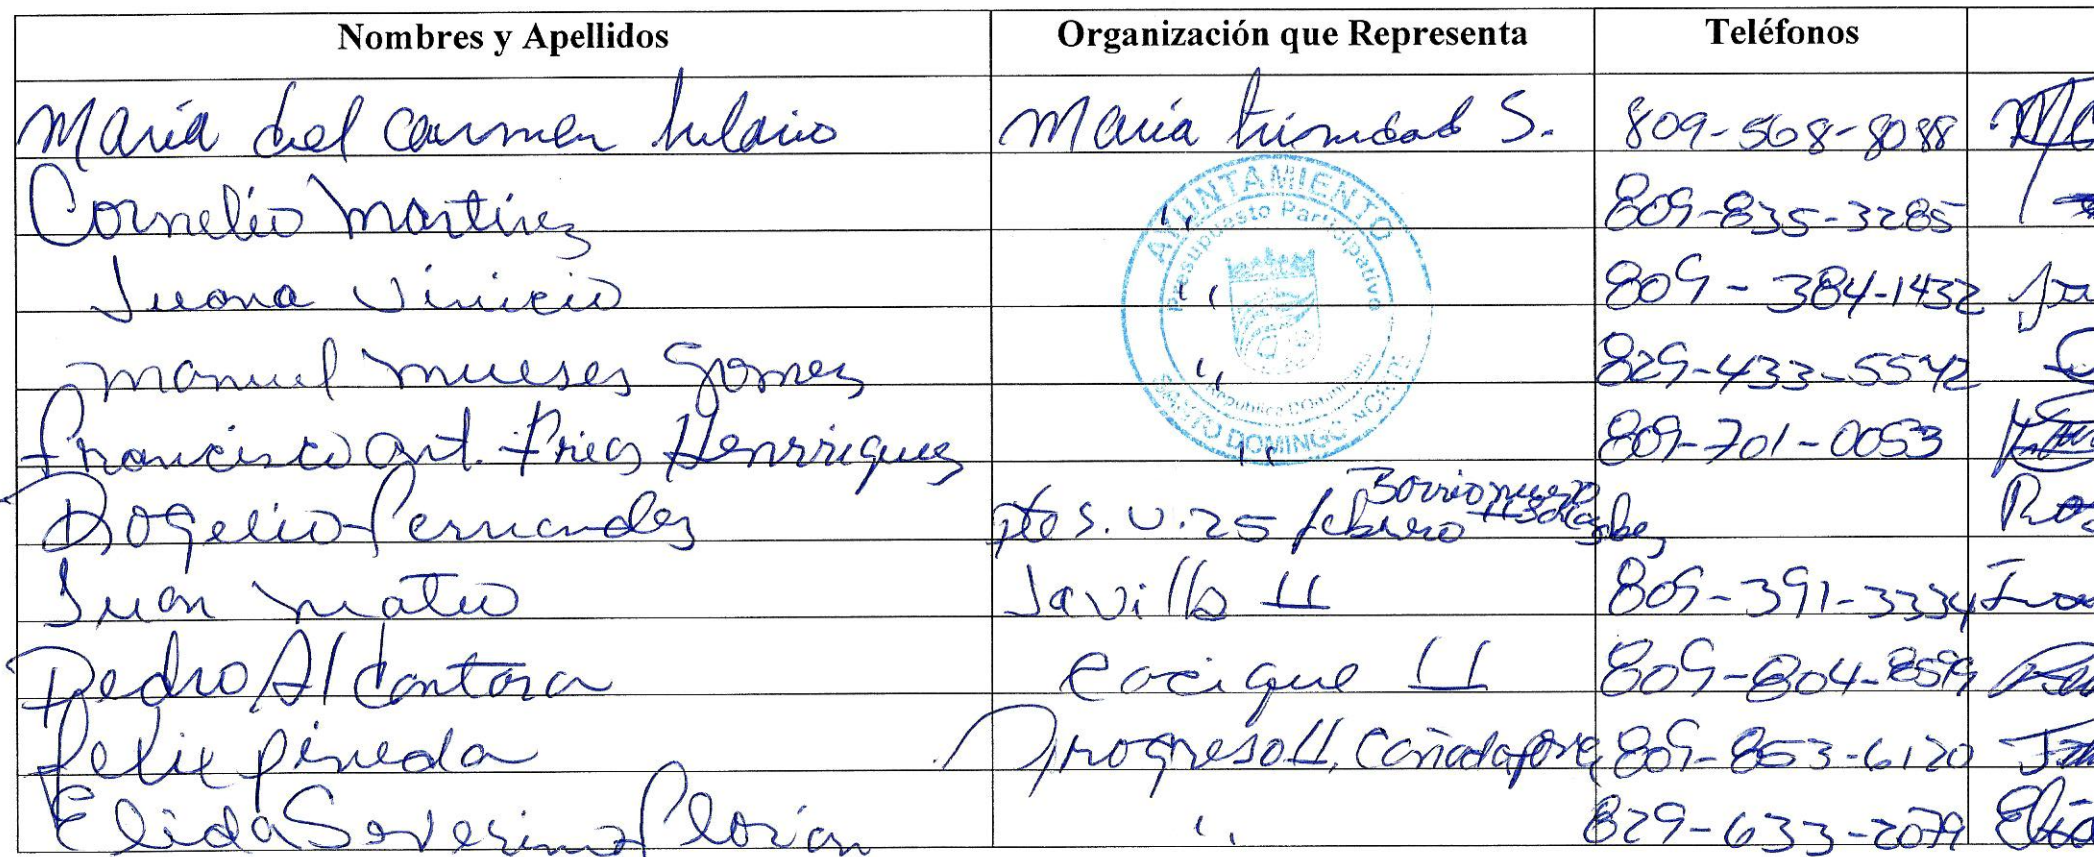 Nombres y Apellidos Organización que Representa Teléfonos
Maria del Carmen hilario Maria trinidad S. 809-568-8088
Cornelio Martinez " 809-835-3285
Juana Vinicio " 809-384-1432
Manuel mueses Gomez " 829-433-5542
Francisco ant. Frias Henrriquez " 809-701-0053
Barrio nuevo
Rogelio Fernandez pte S. U. 25 febrero
Juan mateo Javilla II 809-391-3334
Pedro Alcantara Cacique II 809-804-8599
felix pineda Progreso II, 809-853-6120
Elida Severino Florian " 829-633-2079
AYUNTAMIENTO
Presupuesto Participativo
República Dominicana
SANTO DOMINGO NORTE